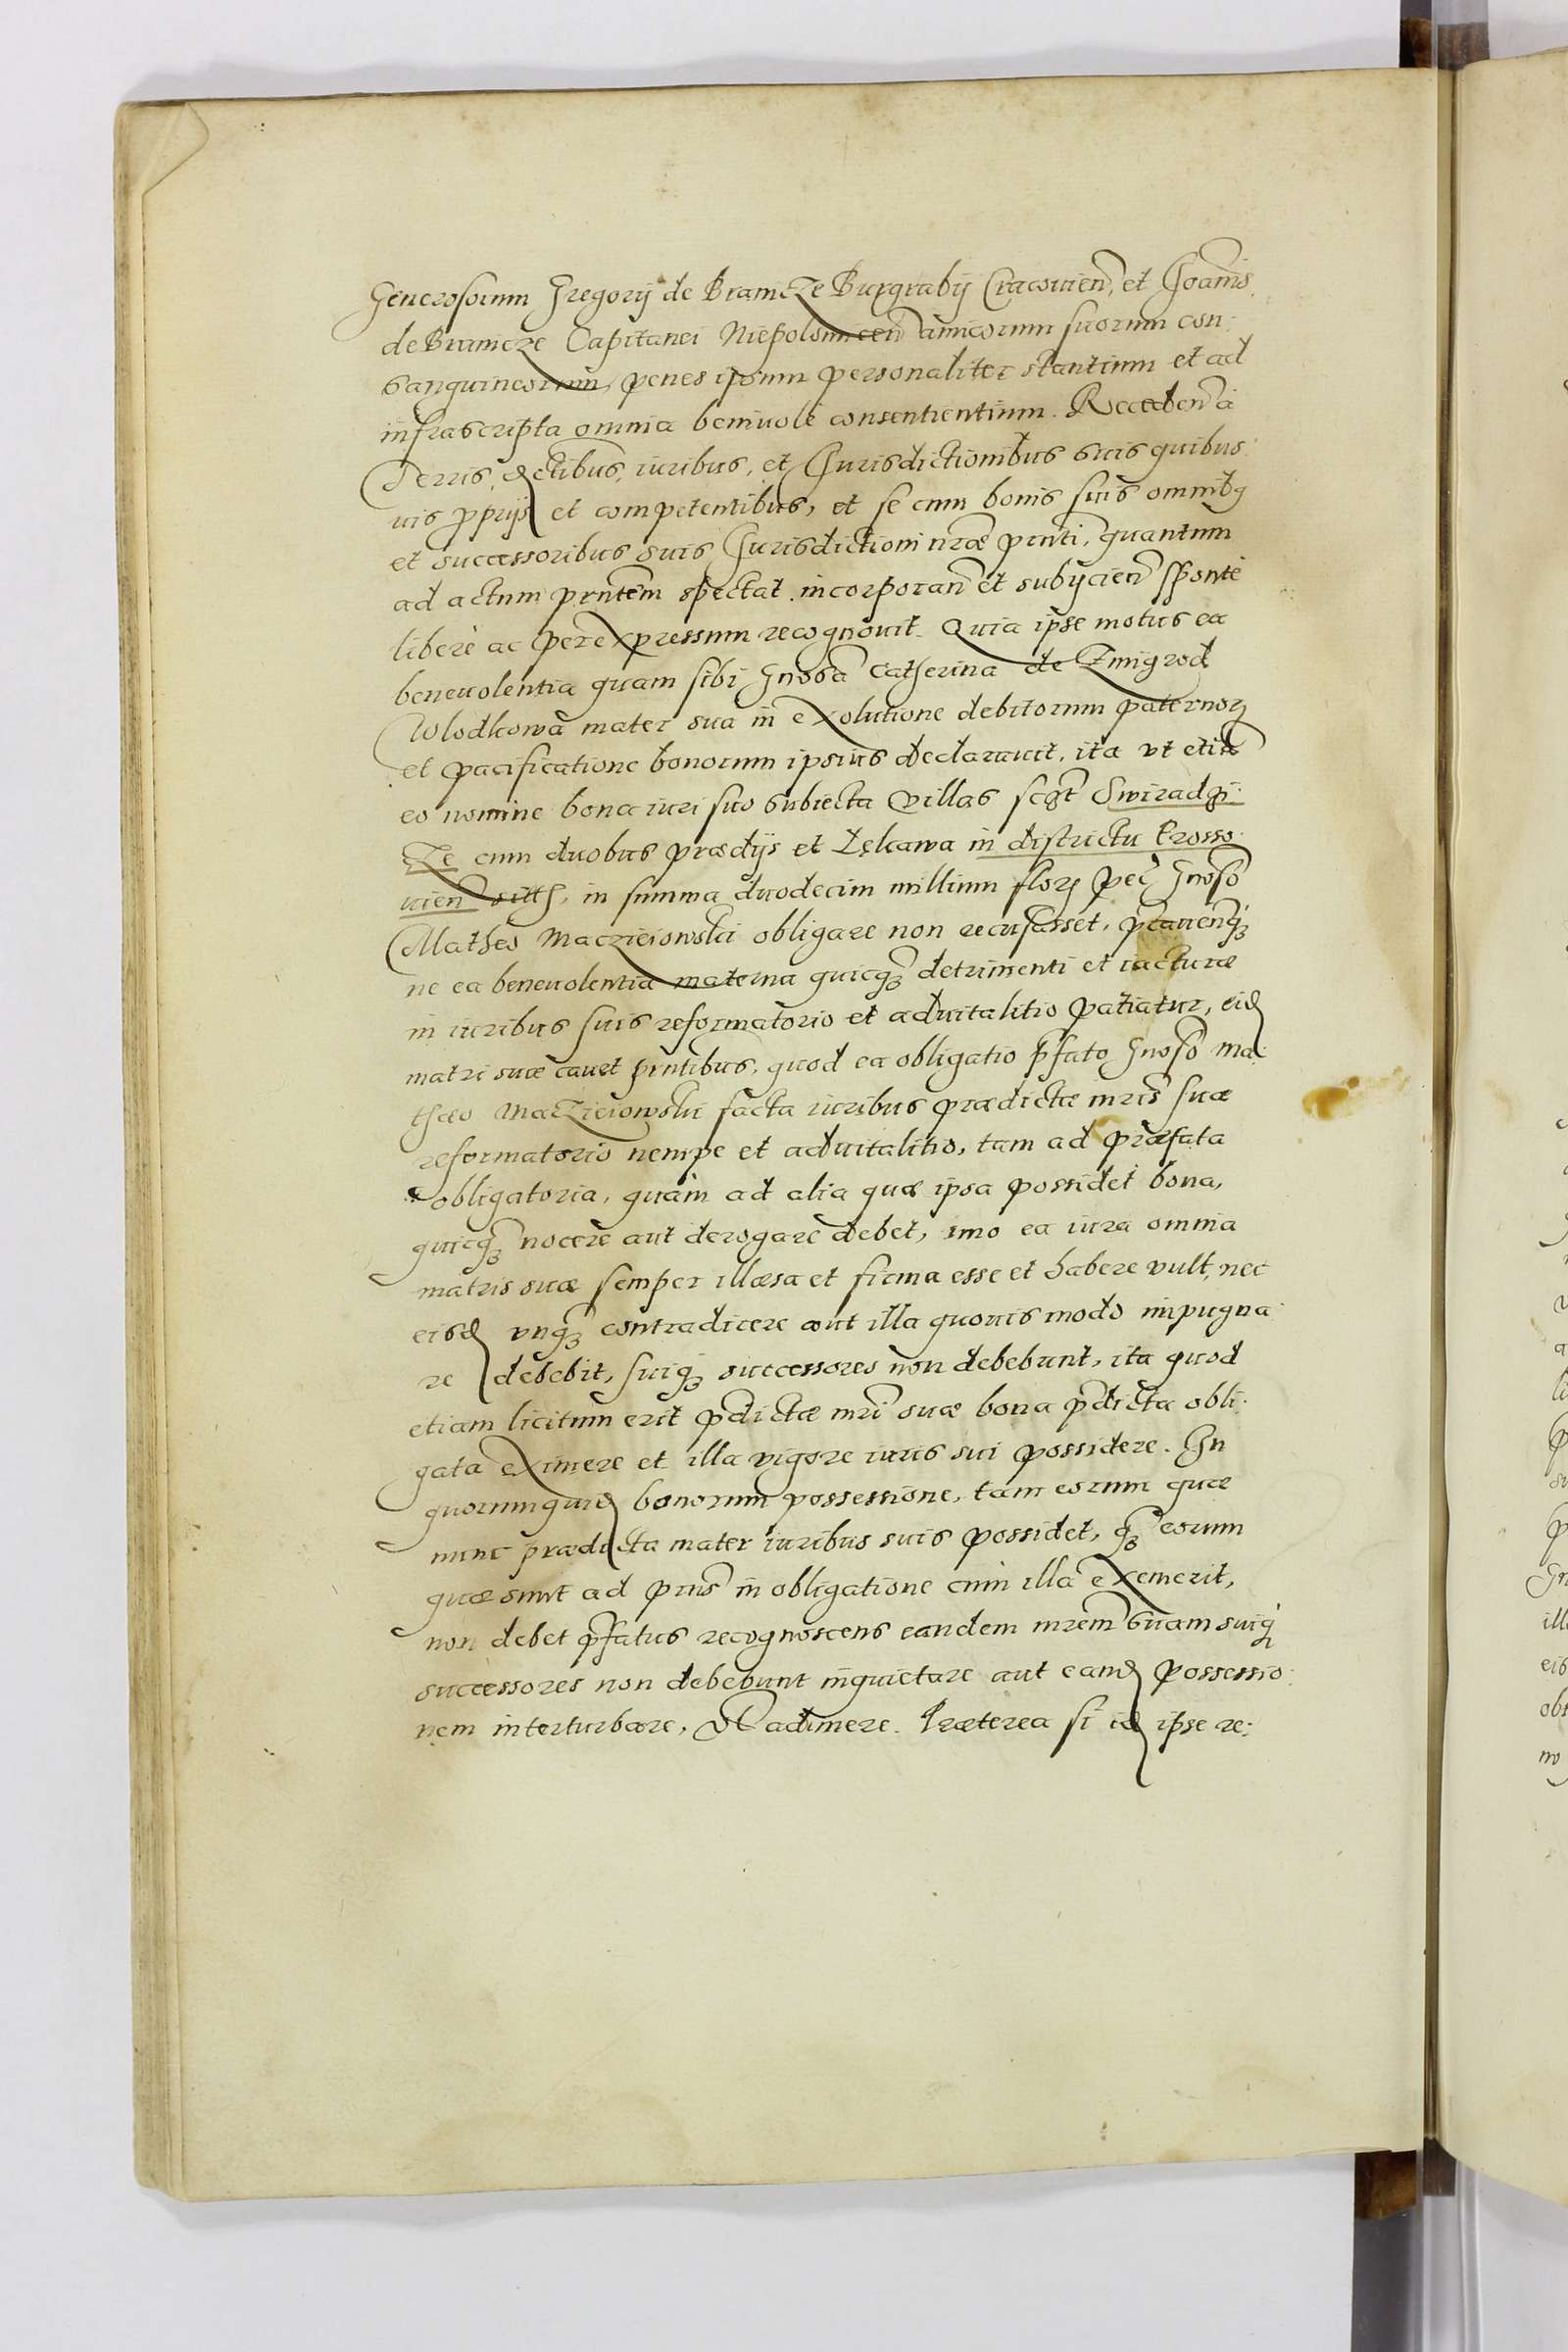 Generosorum Gregorij de Branicze Burgrabij Cracouien̄, et Joan̄is
de Branicze Capitanei Niepolomicen̄ amicorum suorum con-
sanguineorum, penes ipsum personaliter stantium et ad
infrascripta omnia beniuole consentientium. Recceden̄ a
Terris, districtibus, iuribus, et Jurisdictionibus suis quibus-
uis pprijs et competentibus, et se cum bonis suis omnibꝫ
et successoribus suis Jurisdictioni nr̄æ pn̄ti, quantum
ad actum prn̄tem spectat incorporan̄ et subijcien̄ sponte
liberè ac per expressum recognouit. Quia ipse motus ea
beneuolentia quam sibi Gnosā Catherina de Zmigrod
Wlodkowa mater sua in exolutione debitorum paternorꝫ
et pacificatione bonorum ipsius declarauit, ita vt etiā
eo nomine bona iuri suo subiecta villas sc̄t Swiradzi-
ze cum duobus prædijs et Lękawa in districtu Crosso-
uien̄ sitħ, in summa duodecim millium florꝫ peć Gnoso
Matheo Maczieiowski obligare non recusasset, pcauenqꝫ
ne ea beneuolentia materna quicqꝫ detrimenti et iacturæ
in iuribus suis reformatorio et aduitalitio patiatur, eid
matri suæ cauet pn̄tibus, quod ea obligatio p̄fato Gnoso Ma-
thæo Macziciowski facta iuribus prædictæ mris suæ
reformatorio nempe et aduitalitio, tam ad præfata
obligatoria, quàm ad alia quæ ipsa possidet bona,
quicqꝫ nocere aut derogare debet, imo ea iura omnia
matris suæ semper illæsa et firma esse et habere vult, nec
eisd vnqꝫ contradicere aut illa quouis modo impugna-
re debebit, suiqꝫ successores non debebunt, ita quod
etiam licitum erit p̄dictæ mri suæ bona p̄dicta obli-
gata eximere et illa vigore iuris sui possidere. In
quorumquid bonorum possessione, tam eorum quæ
nunc prædicta mater iuribus suis possidet, qꝫ eorum
quæ sunt ad p̄ns in obligatione cum illa exemerit,
non debet p̄fatus recognoscens eandem mrem suam suiqꝫ
successores non debebunt inquietare aut eand possessio-
nem interturbare, vel adimere. Præterea si id ipse re-